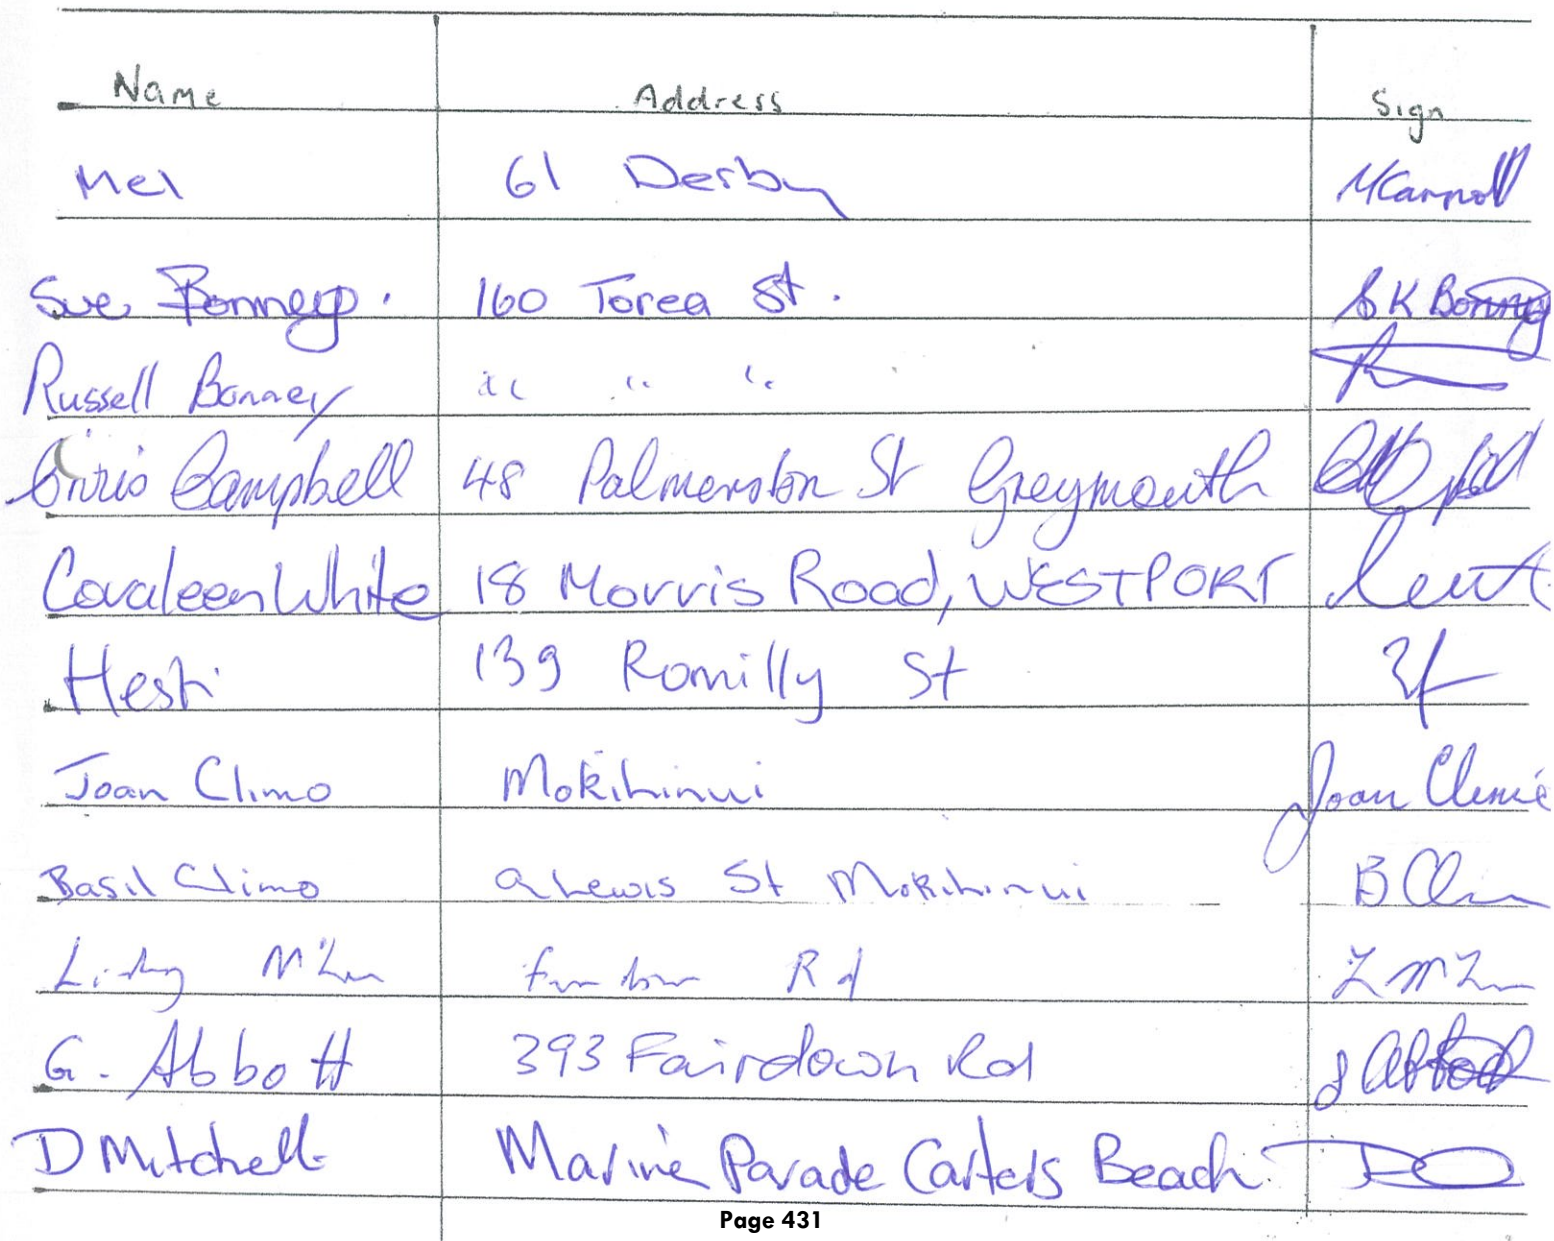 Name Address Sign
Mel 61 Derby MCarroll
Sue Bonney. 160 Torea St. SK Bonney
Russell Bonney " " "
Chris Campbell 48 Palmerston St Greymouth
Coraleen White 18 Morris Road, WESTPORT
Hesti 139 Romilly St
Joan Climo Mokihinui Joan Climo
Basil Climo Lewis St Mokihinui B
Rd
G. Abbott 393 Fairdown Rd Abbott
D Mitchell Marine Parade Carters Beach
Page 431